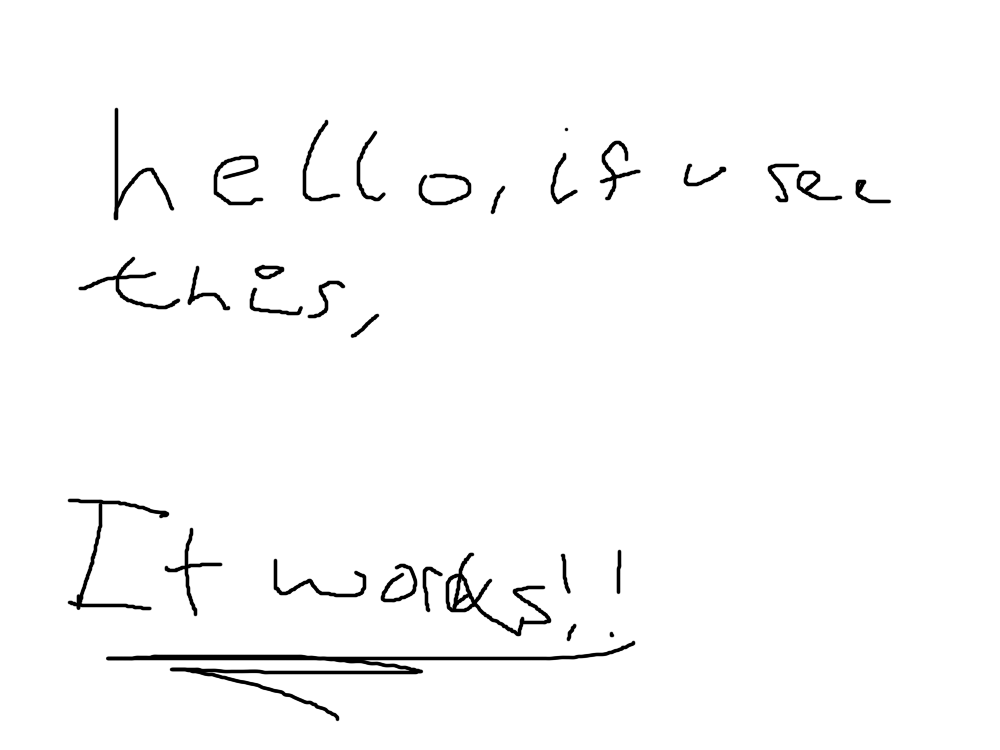 hello, if u see
this,
It works!!